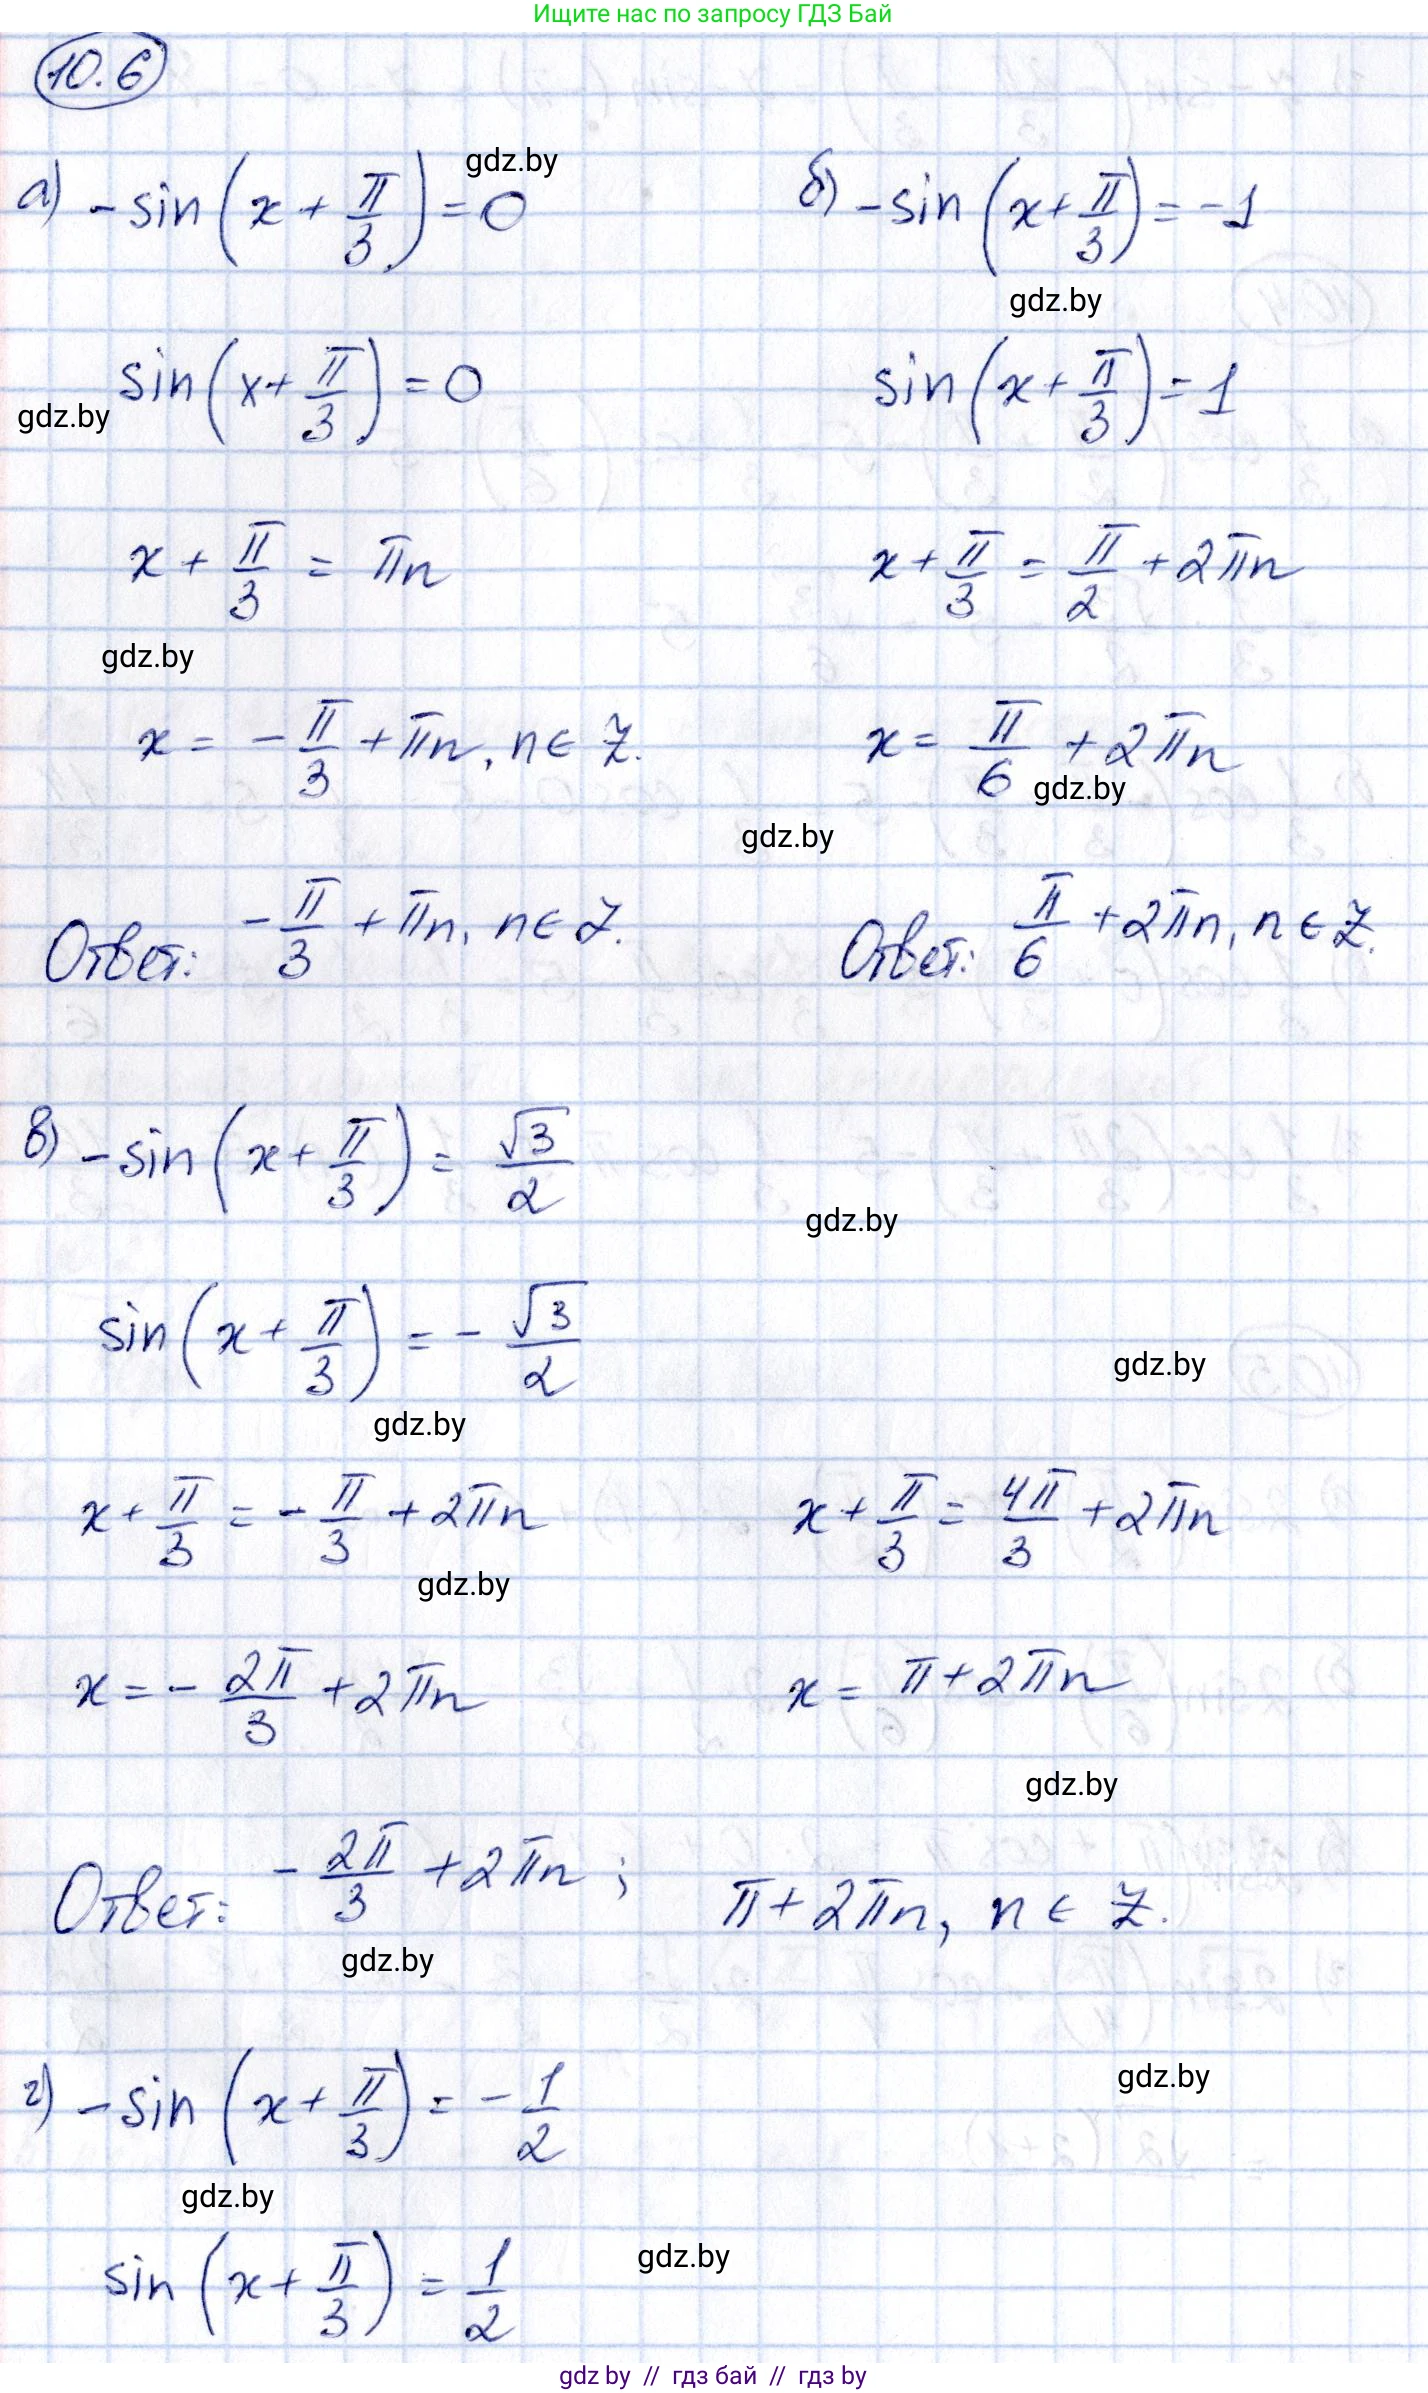 Ищите нас по запросу ГДЗ Бай
10.6
gdz.by
а) -sin(x + π/3) = 0
б) -sin(x + π/3) = -1
gdz.by
sin(x + π/3) = 0
sin(x + π/3) = 1
gdz.by
x + π/3 = πn
x + π/3 = π/2 + 2πn
gdz.by
x = -π/3 + πn, n ∈ Z.
x = π/6 + 2πn
gdz.by
gdz.by
Ответ: -π/3 + πn, n ∈ Z.
Ответ: π/6 + 2πn, n ∈ Z.
в) -sin(x + π/3) = √3/2
gdz.by
sin(x + π/3) = -√3/2
gdz.by
gdz.by
x + π/3 = -π/3 + 2πn
x + π/3 = 4π/3 + 2πn
gdz.by
x = -2π/3 + 2πn
x = π + 2πn
gdz.by
Ответ: -2π/3 + 2πn; π + 2πn, n ∈ Z.
gdz.by
г) -sin(x + π/3) = -1/2
gdz.by
gdz.by
sin(x + π/3) = 1/2
gdz.by
gdz by // гдз бай // гдз by